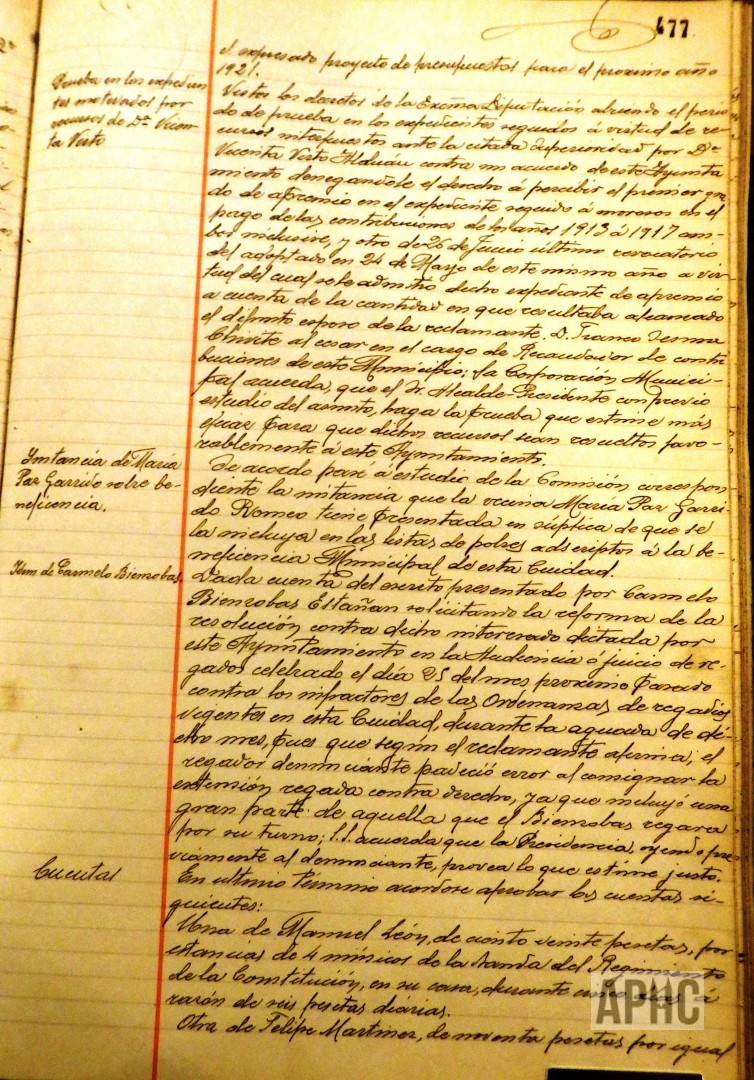 477
el expresado proyecto de presupuestos para el proximo año
1921.
Prueba en los expedien
tes motivados por
recursos de Dª Vicen
ta Visto
Vistos los decretos de la Excma Diputación abriendo el perio
do de prueba en los expedientes seguidos á virtud de re
cursos interpuestos ante la citada Superioridad por Dª
Vicenta Visto Alduán contra un acuerdo de este Ayunta
miento denegandole el derecho á percibir el premier gra
do de apremio en el expediente seguido á morosos en el
pago de las contribuciones de los años 1913 á 1917 am-
bos inclusive, y otro de 26 de Junio último revocatorio
del adoptado en 24 de Mayo de este mismo año a vir-
tud del cual se le admitió dicho expediente de apremio
a cuenta de la cantidad en que resultaba alcanzado
el difunto esposo de la reclamante. D. Franco
Chivite al cesar en el cargo de Recaudador de contri
buciones de este Municipio; la Corporación Munici-
pal acuerda, que el Sr. Alcalde-Presidente con previo
estudio del asunto, haga la prueba que estime más
eficaz para que dichos recursos sean resueltos favo-
rablemente á este Ayuntamiento.
Instancia de María
Paz Garrido sobre be-
neficencia.
De acordo pase á estudio de la Comisión correspon
diente la instancia que la vecina María Paz Garri-
do Romeo tiene presentada en súplica de que se
la incluya en las listas de pobres adscriptos á la be-
neficencia Municipal de esta Ciudad.
Idm de Carmelo Bienzobas.
Dada cuenta del escrito presentado por Carmelo
Bienzobas Estañan solicitando la reforma de la
resolución contra dicho interesado dictada por
este Ayuntamiento en la Audiencia ó juicio de re-
gados celebrado el día 25 del mes proximo pasado
contra los infractores de las Ordenanzas de regadíos
vigentes en esta Ciudad, durante la aguada de di-
cho mes, pues que según el reclamante afirma, el
regador denunciante padeció error al consignar la
extensión regada contra derecho, ya que incluyó una
gran parte de aquella que el Bienzobas regara
por su turno; S.S. acuerda que la Presidencia, oyendo pre
viamente al denunciante, provea lo que estime justo.
Cuentas
En ultimo término acordose aprobar las cuentas si-
guientes:
Una de Manuel León, de ciento veinte pesetas, por
estancias de 4 músicos de la banda del Regimiento
de la Constitución, en su casa, durante cinco dias á
razón de seis pesetas diarias.
Otra de Felipe Martinez, de noventa pesetas por igual
APHC